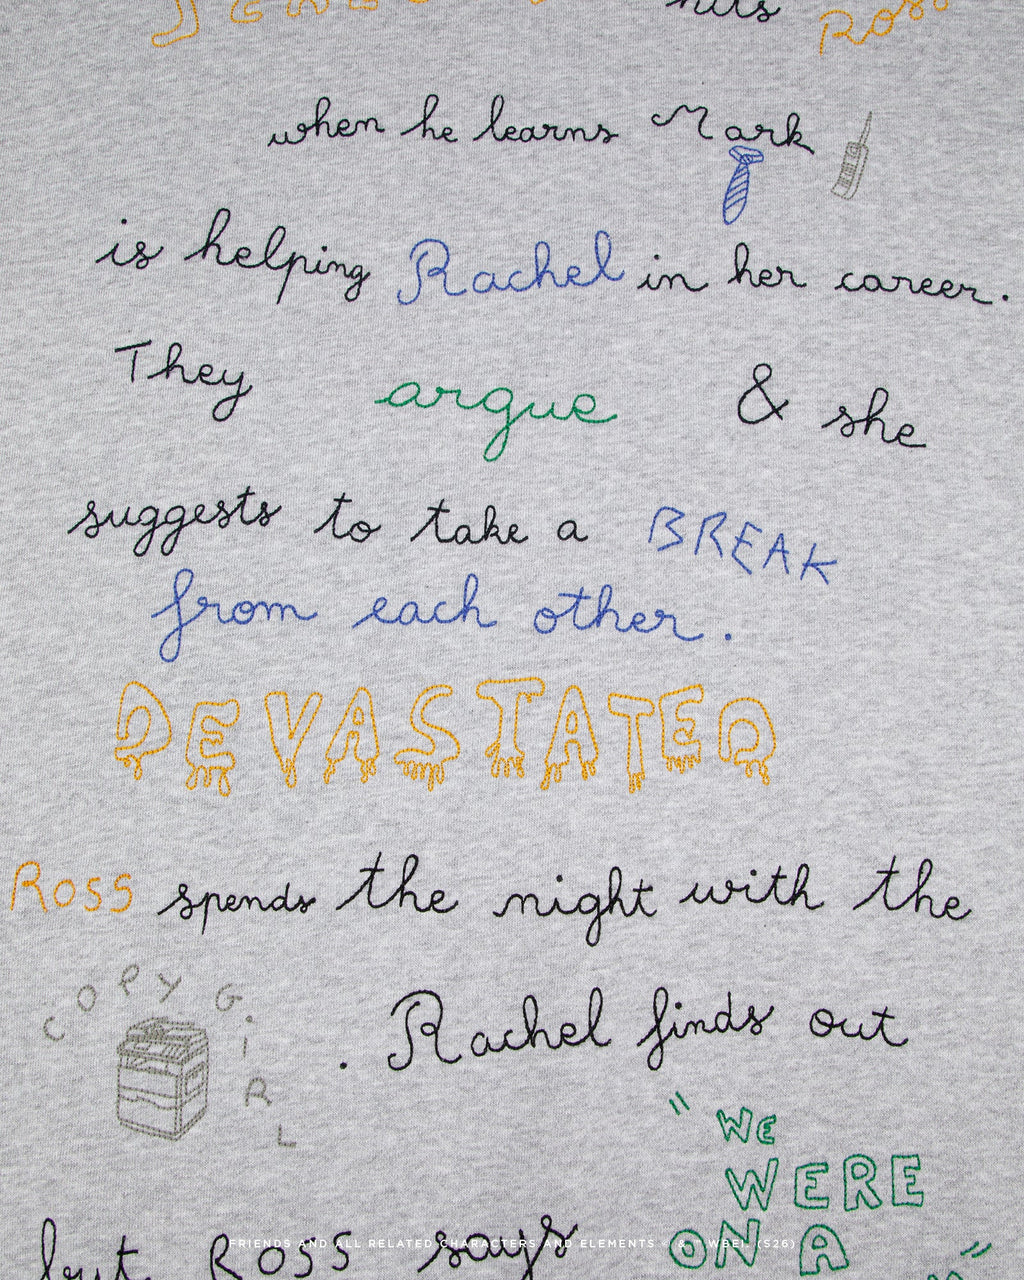 hits Ross
when he learns Mark
is helping Rachel in her career.
They argue & she
suggests to take a BREAK
from each other.
DEVASTATED
Ross spends the night with the
COPY GIRL . Rachel finds out
but Ross says "WE
WERE
ON A "
FRIENDS AND ALL RELATED CHARACTERS AND ELEMENTS © & WBEI. (S26)